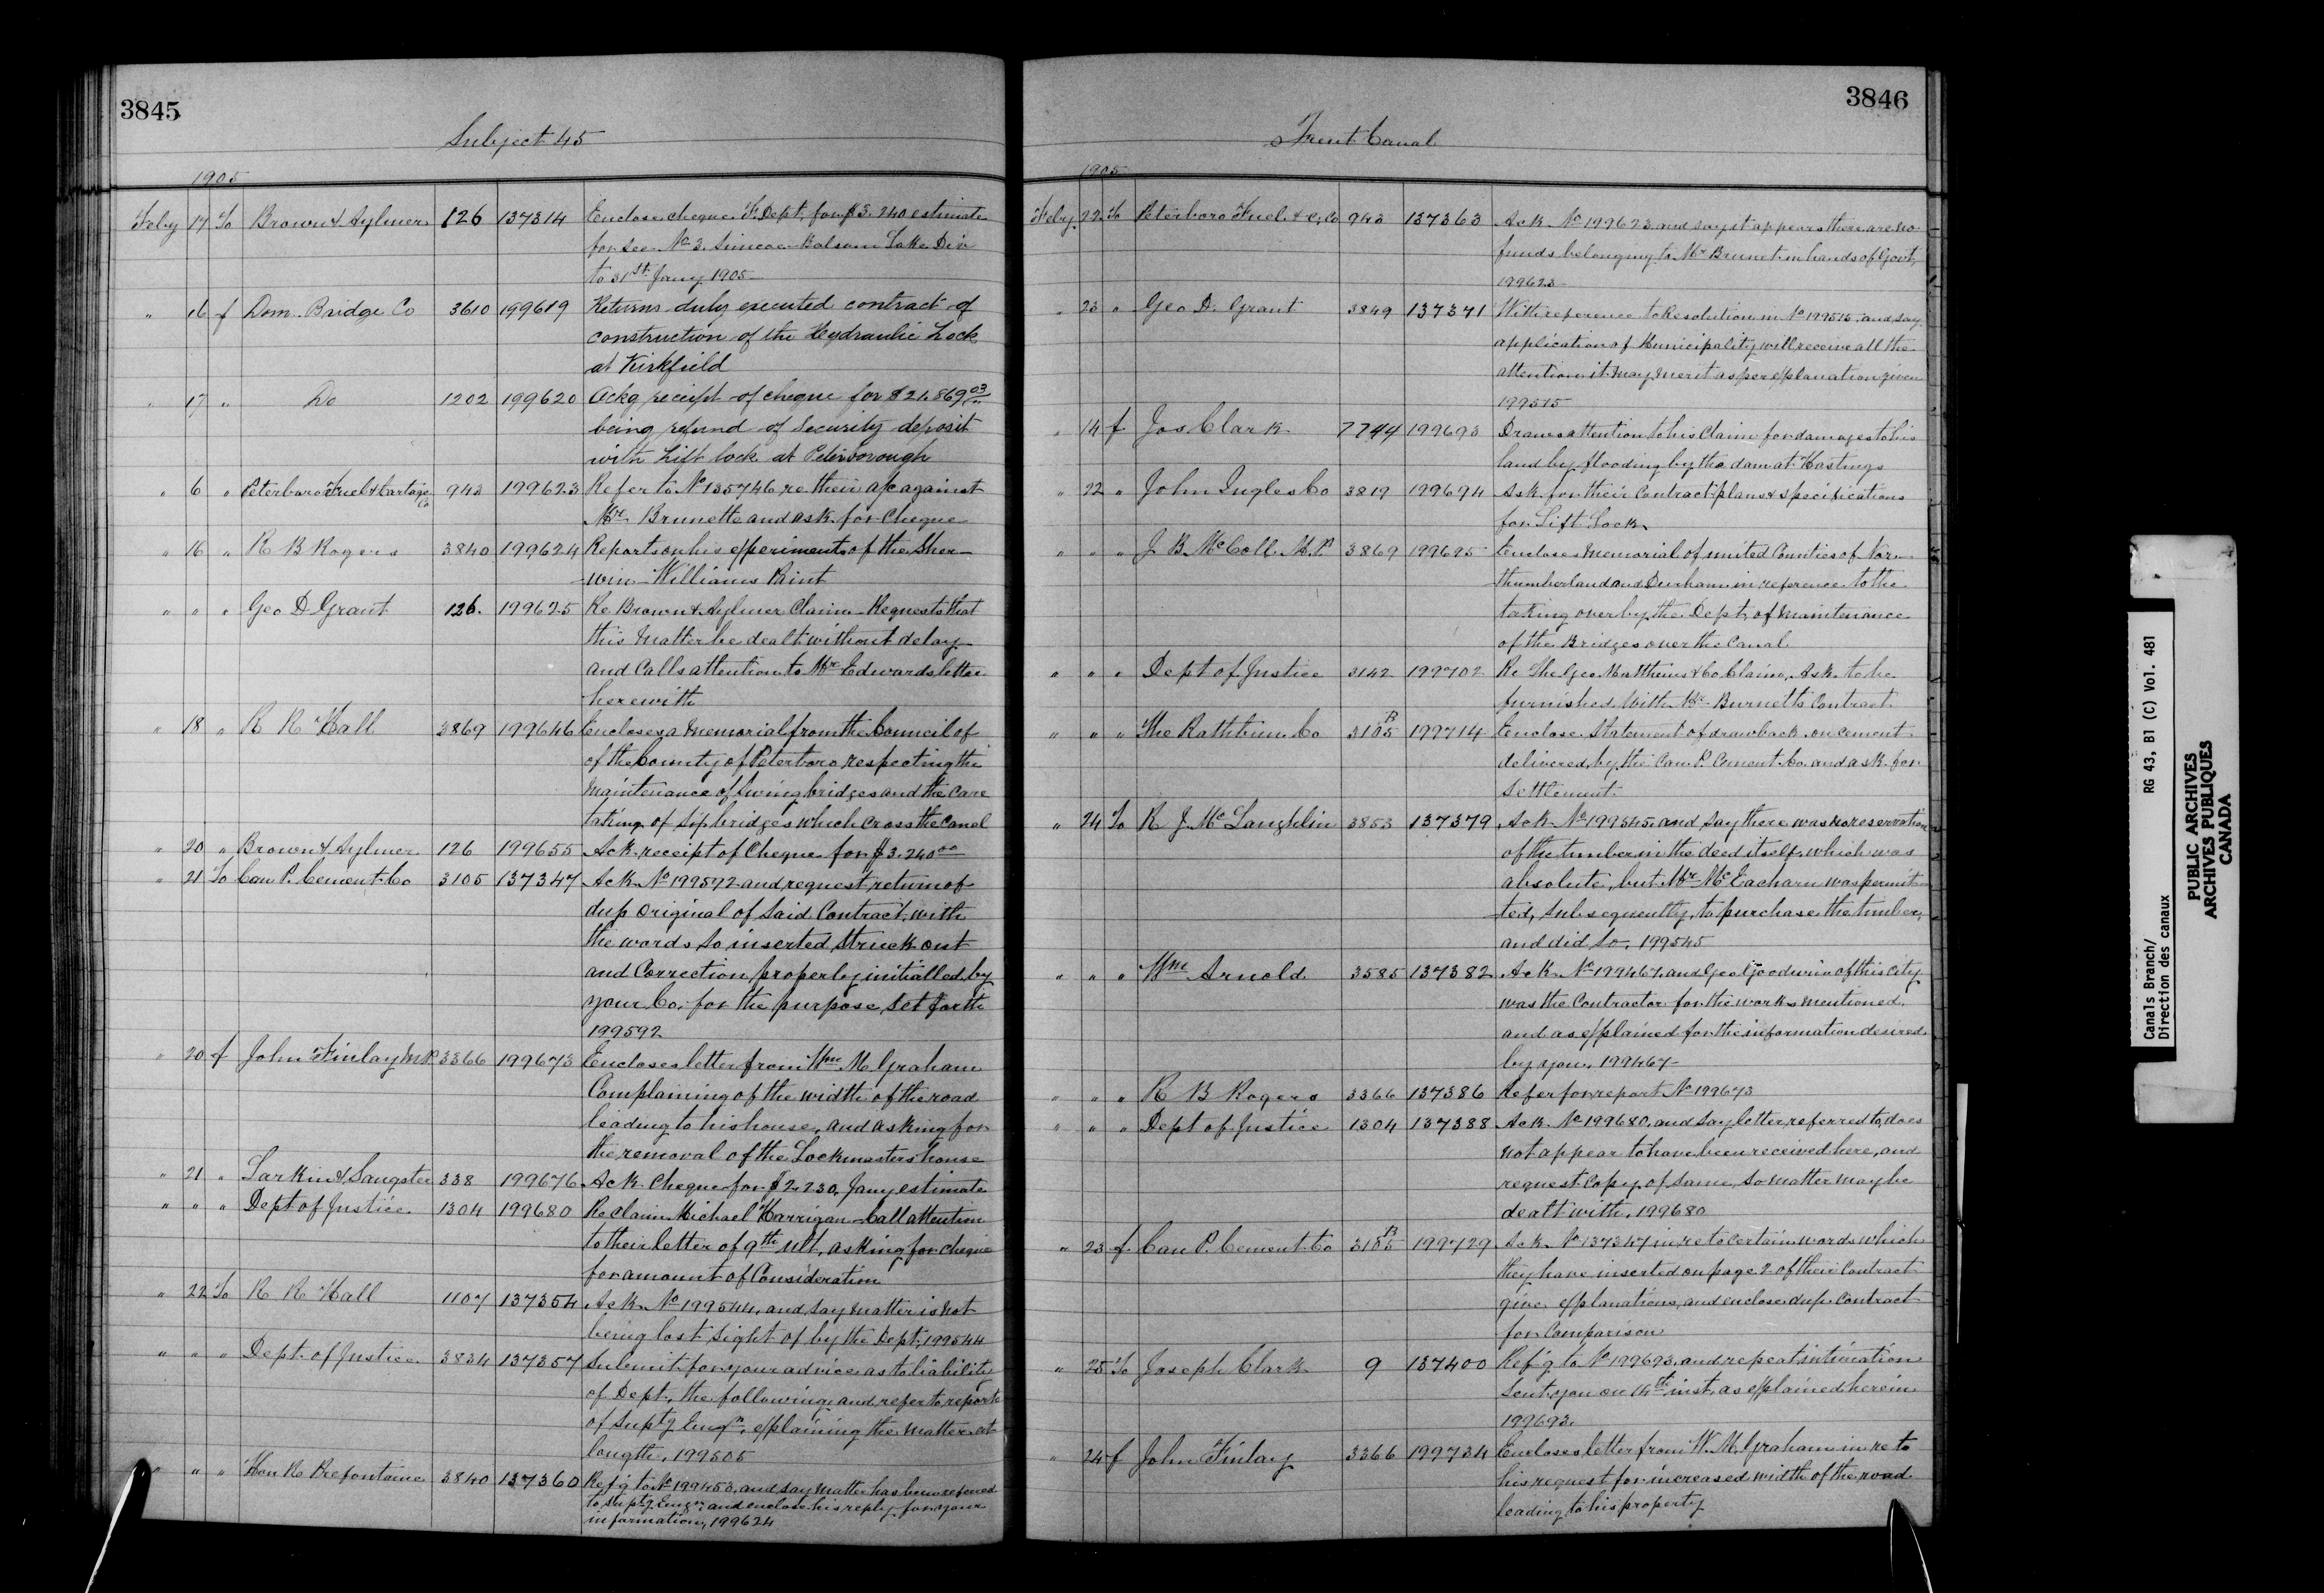 3845
Subject 45
1905
Feby 17 To Brown & Aylmer 126 137314 Enclose cheque F. Dept. for $3.240 estimate
for Sec No 3. Simcoe-Balsam Lake Div
to 31st Jany 1905
" 16 f Dom. Bridge Co 3610 199619 Returns duly executed contract of
construction of the Hydraulic Lock
at Kirkfield
" 17 " Do 1202 199620 Ackg receipt of cheque for $21.869 03
being refund of security deposit
with Lift lock at Peterborough
" 6 " Peterboro Fuel & Cartage Co 943 199623 Refer to No 135746 re their a/c against
Mr Brunette and ask for cheque
" 16 " R B Rogers 3840 199624 Reports on his experiments of the Sher-
win-Williams Paint
" " " Geo D Grant 126. 199625 Re Brown & Aylmer Claim - Requests that
this matter be dealt without delay
and calls attention to Mr Edwards letter
herewith
" 18 " R R Hall 3869 199646 Encloses a memorial from the Council of
of the County of Peterboro respecting the
maintenance of Swing bridges and the care
taking of six bridges which cross the Canal
" 20 " Brown & Aylmer 126 199655 Ack receipt of Cheque for $3.240 00
" 21 To Can P. Cement Co 3105 137347 Ack No 199592 and request return of
dup original of said Contract, with
the words so inserted struck out
and Correction properly initialled by
your Co. for the purpose set forth
199592
" 20 f John Finlay M.P. 3366 199673 Encloses letter from Wm M. Graham
Complaining of the width of the road
leading to his house, and asking for
the removal of the Lockmasters house
" 21 " Larkin & Sangster 338 199676 Ack Cheque for $2.230. Jany estimate
" " " Dept of Justice 1304 199680 Re Claim Michael Harrigan - Call attention
to their letter of 9th ult, asking for cheque
for amount of Consideration
" 22 To R R Hall 1107 137354 Ack No 199544, and say matter is not
being lost sight of by the Dept, 199544
" " " Dept. of Justice 3834 137357 Submit for your advice as to liability
of Dept, the following and refer to reports
of Suptg Engr. explaining the matter at
length. 199505
" " " Hon R. Prefontaine 3840 137360 Ref'g to No 199453, and say matter has been referred
to Suptg Engr. and enclose his reply for your
information, 199624
3846
Trent Canal
1905
Feby. 22 To Peterboro Fuel & C. Co 943 137363 Ack No 199623 and say it appears there are no
funds belonging to Mr Brunet in hands of Govt,
199623
" 23 " Geo D. Grant 3849 137371 With reference to Resolution in No 199515 and say
application of Municipality will receive all the
attention it may merit as per explanation given
199515
" 14 f Jos Clark 7744 199693 Draws attention to his Claim for damages to his
land by flooding by the dam at Hastings
" 22 " John Ingles Co 3819 199694 Ask for their Contract plans & specifications
for Lift Lock
" " " J. B. McColl M.P. 3869 199695 Encloses memorial of united Counties of Nor-
thumberland and Durham in reference to the
taking over by the Dept, of maintenance
of the Bridges over the Canal
" " " Dept of Justice 3142 199702 Re The Geo. Matthews & Co Claim, Ask to be
furnished with Mr Burnett's Contract
" " " The Rathbun Co 3105 B 199714 Enclose Statement of drawback on cement
delivered by the Can. P. Cement Co. and ask for
settlement.
" 24 To R J. McLaughlin 3853 137379 Ack No 199545 and say there was no reservation
of the timber in the deed itself, which was
absolute, but Mr McEachern was permit-
ted, subsequently, to purchase the timber,
and did so. 199545
" " " Wm Arnold 3585 137382 Ack No 199467, and Geo Goodwin of this City
was the Contractor for the works mentioned.
and as explained for the information desired
by you. 199467
" " " R B Rogers 3366 137386 Refer for report No 199673
" " " Dept of Justice 1304 137388 Ack No 199680. and say letter referred to, does
not appear to have been received here, and
request Copy of same, so matter may be
dealt with. 199680
" 23 f. Can P. Cement Co 3105 B 199729 Ack No 137347 in re to certain words which
they have inserted on page 2 of their Contract
give explanations, and enclose dup. Contract
for Comparison
" 25 To Joseph Clark 9 137400 Ref'g to No 199693, and repeat intimation
sent you on 14th inst. as explained herein
199693.
" 24 f John Finlay 3366 199734 Encloses letter from W. M. Graham in re to
his request for increased width of the road
leading to his property
Canals Branch/ RG 43, B1 (C) Vol. 481
Direction des canaux
PUBLIC ARCHIVES
ARCHIVES PUBLIQUES
CANADA